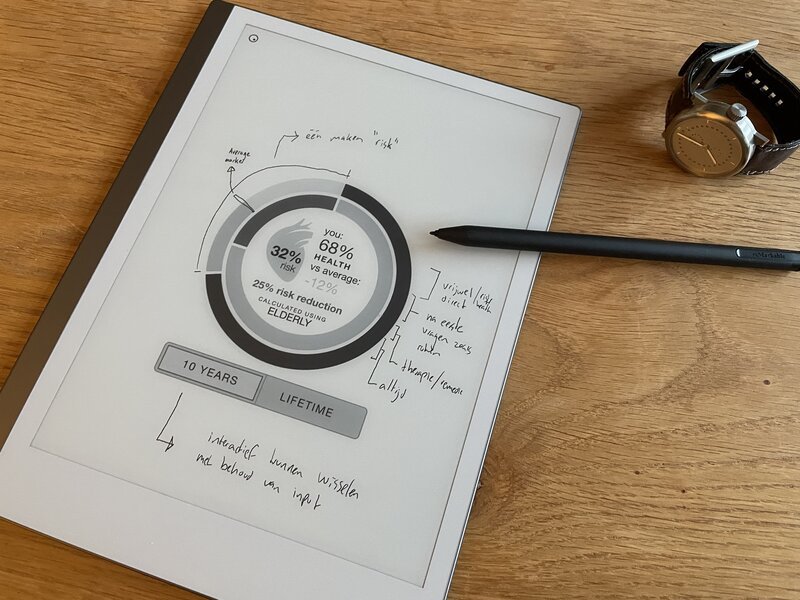 één maken "risk"
Average
market
you:
68%
HEALTH
vs average:
-12%
32%
risk
25% risk reduction
CALCULATED USING
ELDERLY
vrijwel/risk
direct health
na enk
vragen zoals
roken
therapie/remedie
altijd
10 YEARS
LIFETIME
interactief kunnen wisselen
met behoud van input
reMarkable